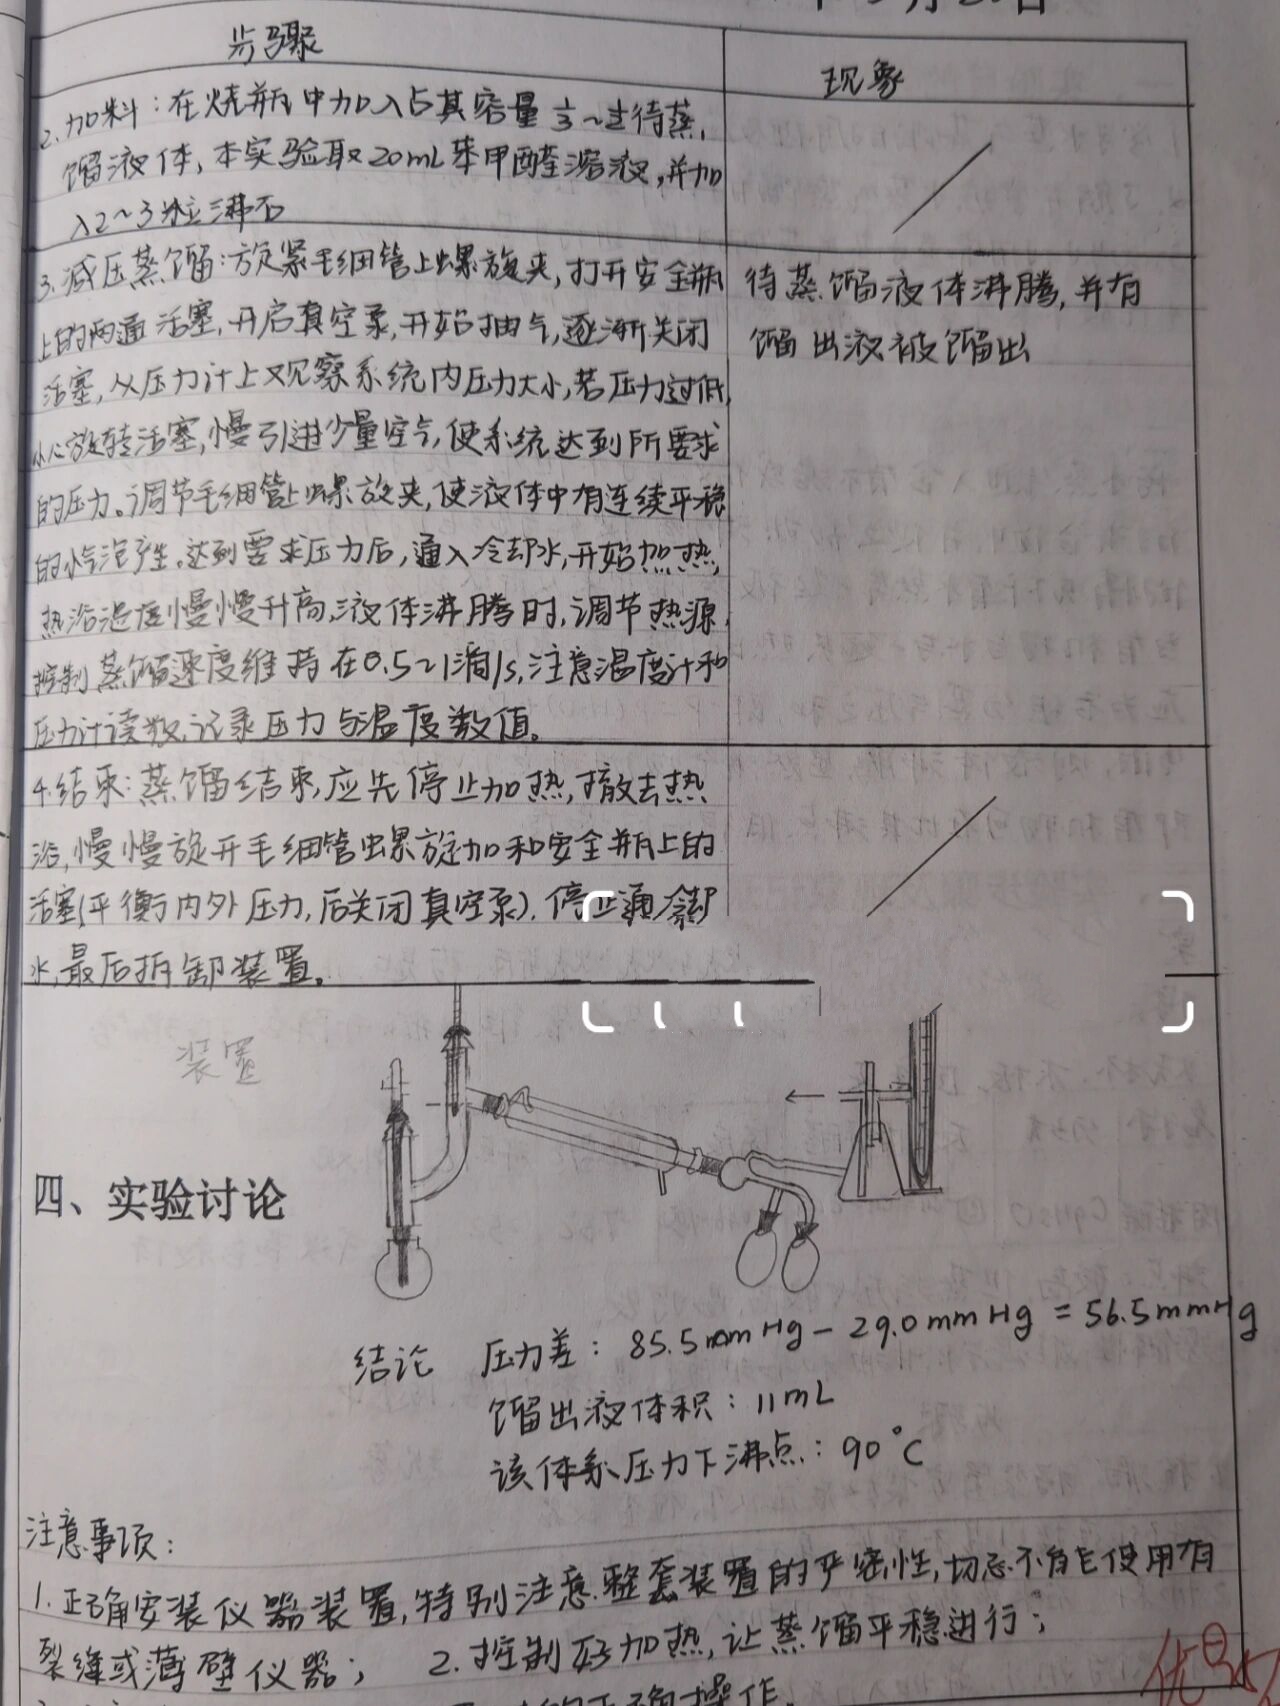 步骤
现象
2.加料：在烧瓶中加入占其容量 1/3~ 待蒸
馏液体，本实验取20mL苯甲醛溶液，并加
入2~3粒沸石
3.减压蒸馏：旋紧毛细管上螺旋夹，打开安全瓶
上的两通活塞，开启真空泵，开始抽气，逐渐关闭
活塞，从压力计上观察系统内压力大小，若压力过低，
小心旋转活塞，慢引进少量空气，使系统达到所要求
的压力。调节毛细管上螺旋夹，使液体中有连续平稳
的小气泡产生。达到要求压力后，通入冷却水，开始加热，
热浴温度慢慢升高，液体沸腾时，调节热源，
控制蒸馏速度维持在0.5~1滴/s，注意温度计和
压力计读数，记录压力与温度数值。
待蒸馏液体沸腾，并有
馏出液被馏出
4.结束：蒸馏结束，应先停止加热，撤去热
浴，慢慢旋开毛细管螺旋加和安全瓶上的
活塞(平衡内外压力，后关闭真空泵)，停止通冷却
水，最后拆卸装置。
装置
四、实验讨论
结论 压力差：85.5mmHg-29.0mmHg=56.5mmHg
馏出液体积：11mL
该体系压力下沸点：90°C
注意事项：
1.正确安装仪器装置，特别注意整套装置的严密性，切忌不能使用有
裂缝或薄壁仪器； 2.控制好加热，让蒸馏平稳进行；
正确操作。